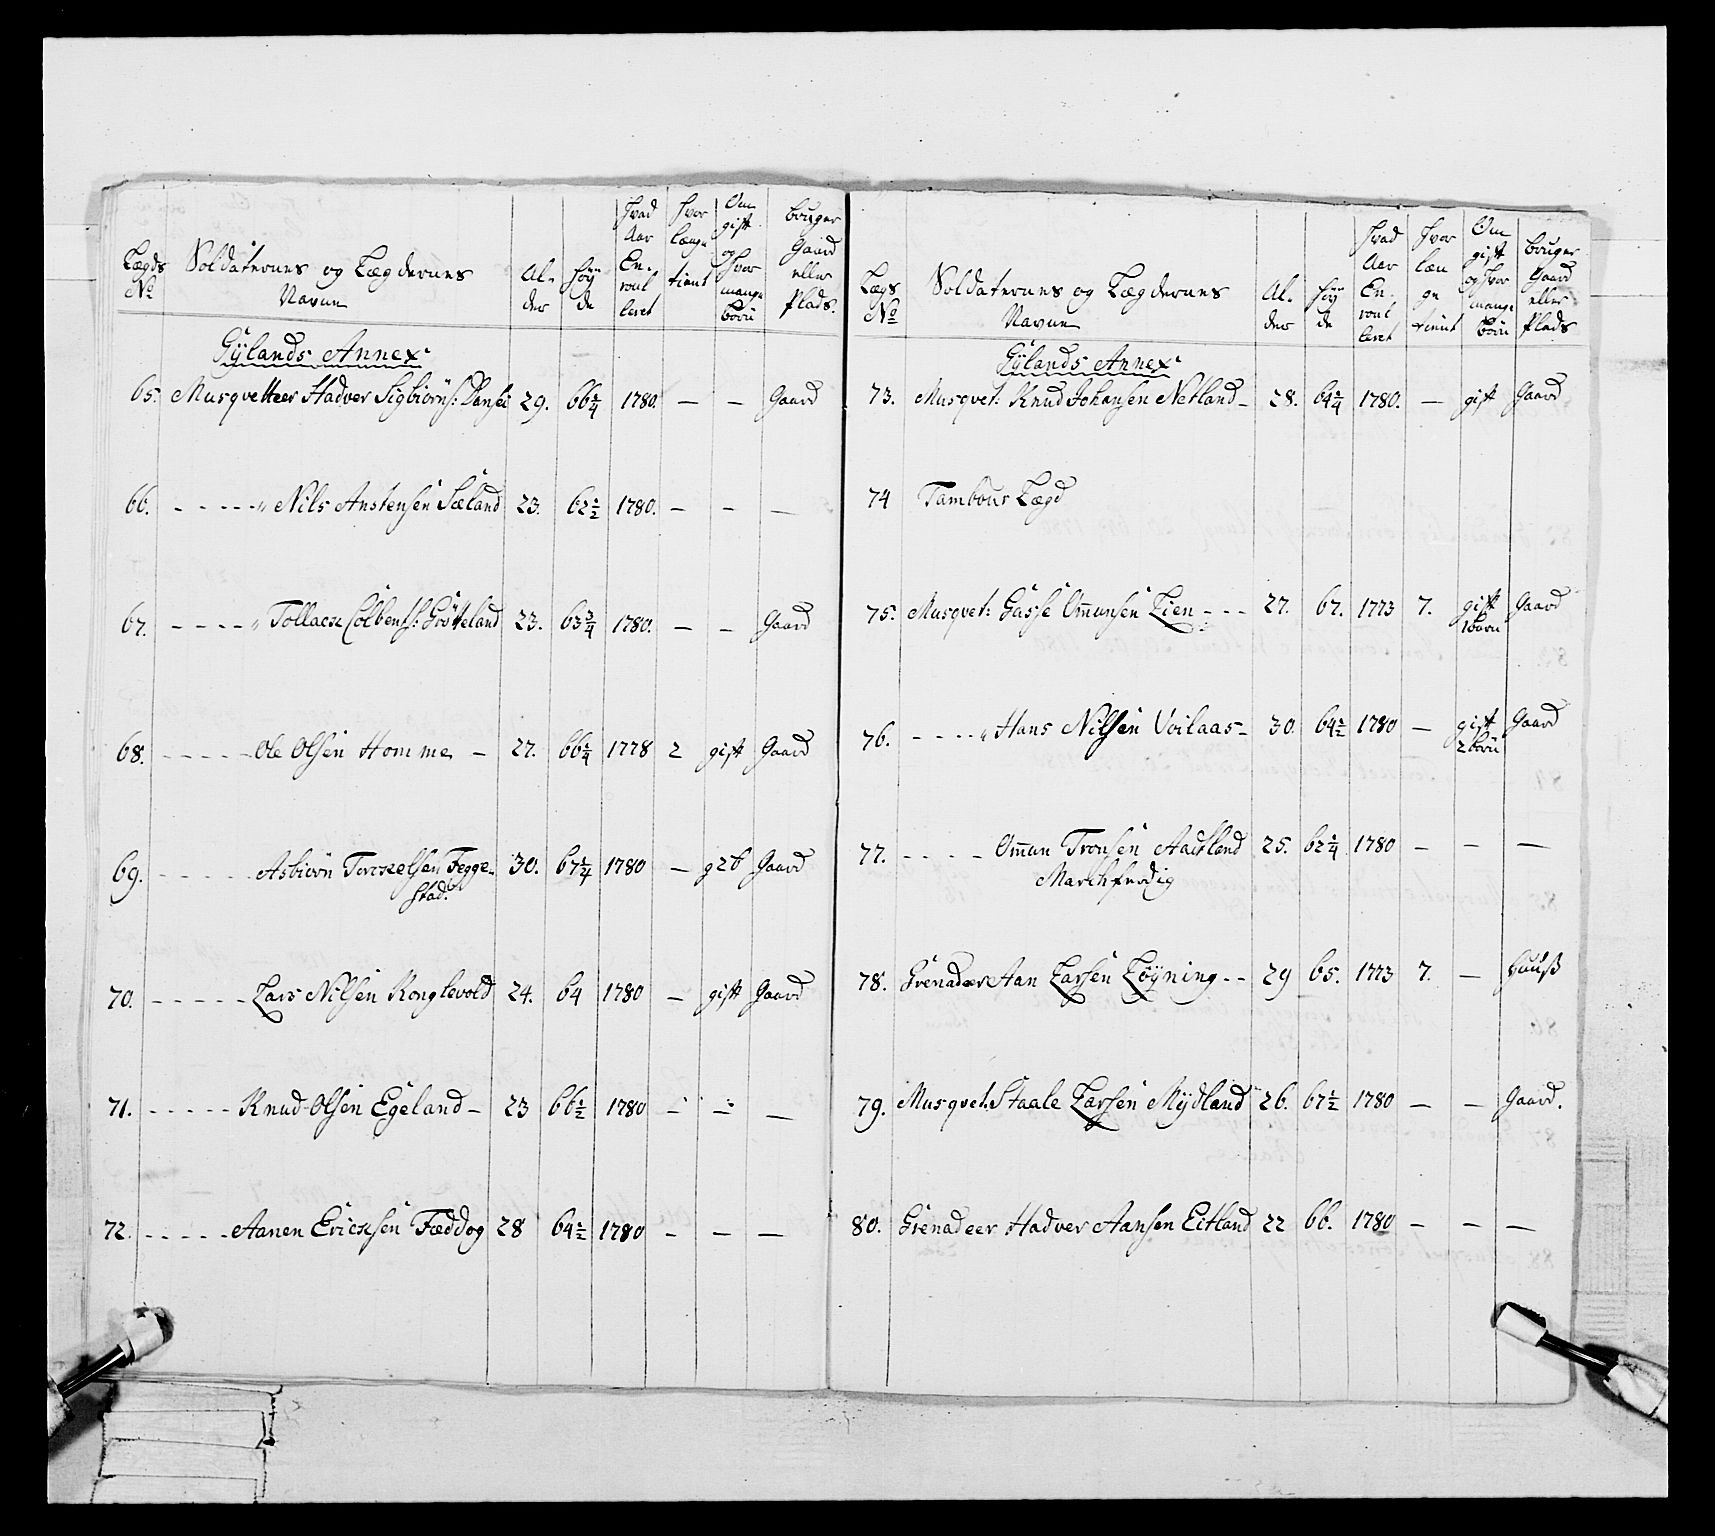 Lægds No Soldaternes og Lægdernes Navne Al- der Høy de Hvad Aar En- roul leret Hvor længe tient Om gift og hvor mange børn bruger Gaard eller Plads.
Gÿlands Annex
65. Musqvetteer Hadver Sigbiörns: 29. 66 1/4 1780. — — Gaard
66. - - - - - " Nils Anstensen Sæland 23. 62 1/2 1780. — — —
67. - - - - " Tollack Colbens: Gröteland 23. 63 3/4 1780. — — Gaard
68. - - - - - Ole Olsen Homme — 27. 66 1/4 1778 2 gift Gaard
69. - - - - - Asbiörn Torckelsen Fegge- 30. 67 1/4 1780 — g 2 b Gaard
stad.
70. - - - - - Lars Nilsen Konglevold 24. 64 1780 — gift Gaard
71. - - - - - Knud Olsen Egeland — 23 66 1/2 1780 — — —
72. - - - - - Aanen Ericksen Fæddog 28 64 1/2 1780 — — —
Lægs No Soldaternes og Lægdernes Navne Al- der Høy de Hvad Aar En- roul leret Hvor læn ge tient Om gift og hvor mange børn bruger Gaard eller Plads
Gÿlands Annex
73. Musqvet: Knud Johansen Netland — 28. 64 1/4 1780. — gift Gaard
74 Tambour Lægd
75. Musqvet: Gasse Omunsen Lien - - - 27. 67. 1773 7. gift Gaard
1 børn
76. - - - - " Hans Nilsen Voilaas — 30. 64 1/2 1780 — gift Gaard
2 børn
77. - - - - Omun Tronsen Aadsland 25. 62 1/4 1780 — — —
Marchferdig
78. Grenadeer Aan Larsen Löyning - - 29 65. 1773 7. — Huuß
79. Musqvet. Staale Larsen Mÿdland 26. 67 1/2 1780 — — Gaard.
80. Grenadeer Hadver Aansen Eitland 22 66. 1780 — — —